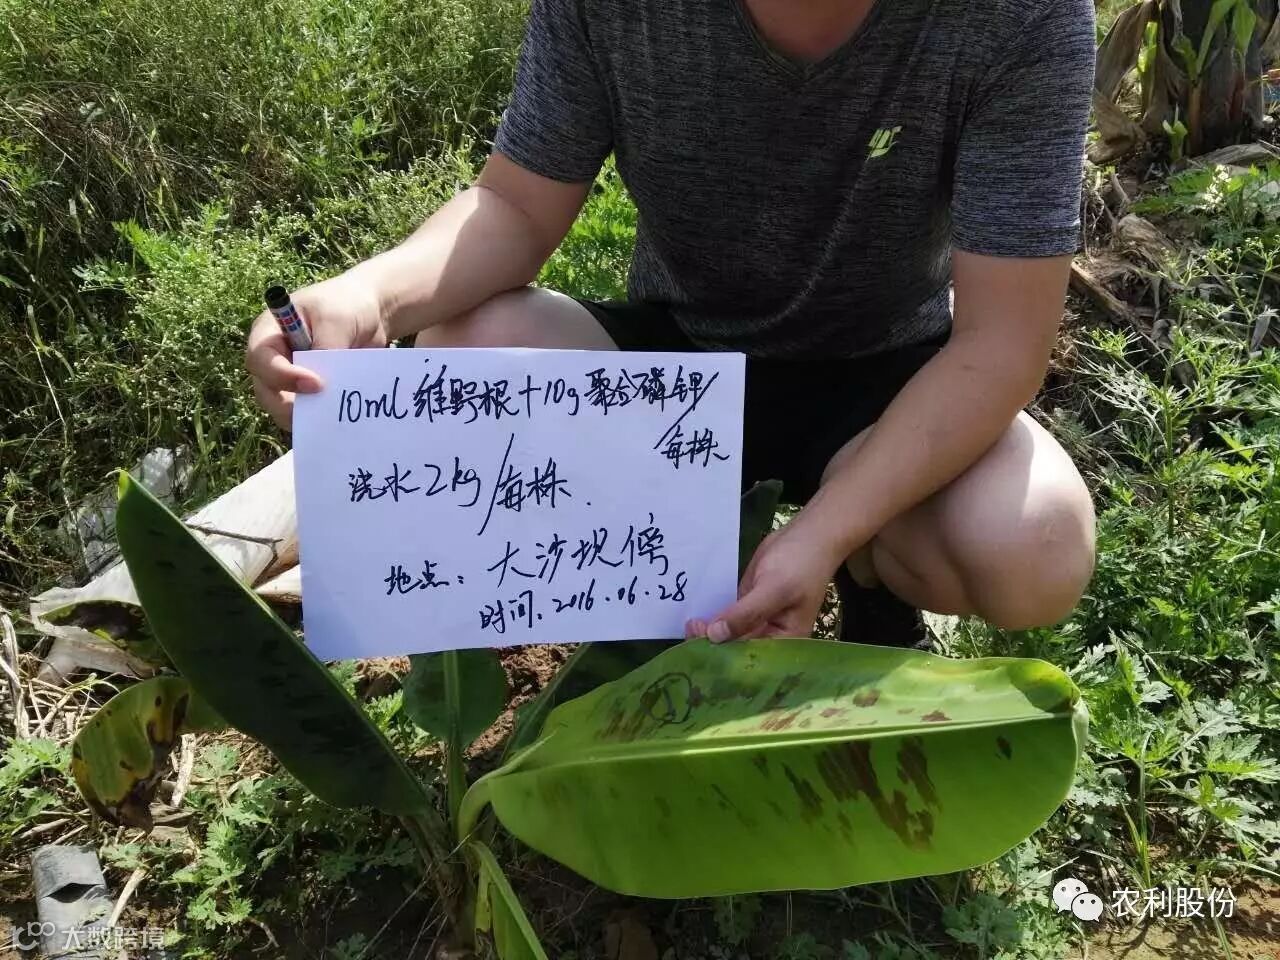 10ml 维野根+10g聚合磷钾/
每株
浇水2kg/每株.
地点：大沙坝傍
时间.2016.06.28
①
农利股份
大数跨境